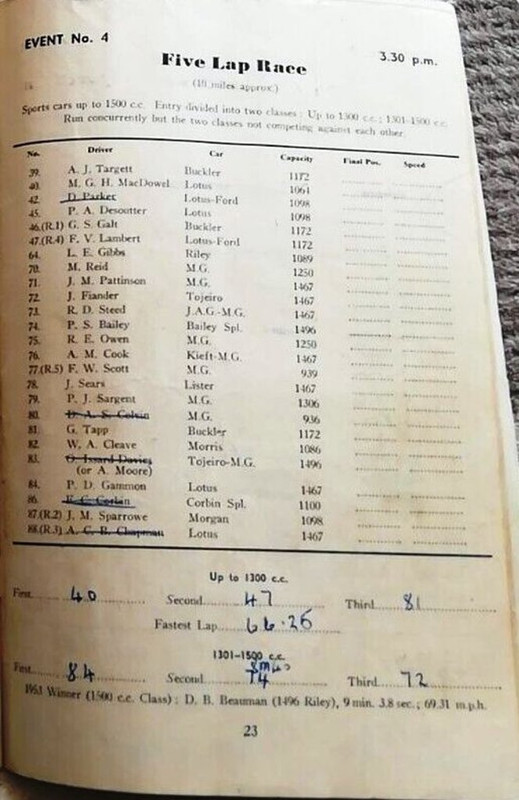 EVENT No. 4
3.30 p.m.
Five Lap Race
(10 miles approx.)
Sports cars up to 1500 c.c. Entry divided into two classes: Up to 1300 c.c.; 1301-1500 c.c.
Run concurrently but the two classes not competing against each other.
No. Driver Car Capacity Final Pos. Speed
39. A. J. Targett Buckler 1172
40. M. G. H. MacDowel Lotus 1061
42. D. Parker Lotus-Ford 1098
45. P. A. Desoutter Lotus 1098
46.(R.1) G. S. Galt Buckler 1172
47.(R.4) F. V. Lambert Lotus-Ford 1172
64. L. E. Gibbs Riley 1089
70. M. Reid M.G. 1250
71. J. M. Pattinson M.G. 1467
72. J. Fiander Tojeiro 1467
73. R. D. Steed J.A.G.-M.G. 1467
74. P. S. Bailey Bailey Spl. 1496
75. R. E. Owen M.G. 1250
76. A. M. Cook Kieft-M.G. 1467
77.(R.5) F. W. Scott M.G. 939
78. J. Sears Lister 1467
79. P. J. Sargent M.G. 1306
80. D. A. S. Colvin M.G. 936
81. G. Tapp Buckler 1172
82. W. A. Cleave Morris 1086
83. O. Issard Davies Tojeiro-M.G. 1496
(or A. Moore)
84. P. D. Gammon Lotus 1467
86. E. C. Corbin Corbin Spl. 1100
87.(R.2) J. M. Sparrowe Morgan 1098
88.(R.3) A. C. B. Chapman Lotus 1467
Up to 1300 c.c.
First 40 Second 47 Third 81
Fastest Lap 66.26
1301-1500 c.c.
First 84 Second 74 Third 72
1953 Winner (1500 c.c. Class): D. B. Beauman (1496 Riley), 9 min. 3.8 sec.; 69.31 m.p.h.
23